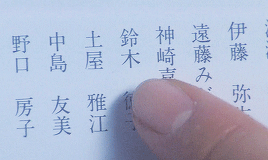 伊藤 弥
遠藤 み
神崎
鈴木
土屋 雅江
中島 友美
野口 房子